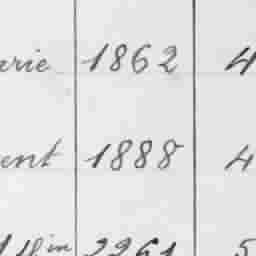 arie 1862 4
ent 1888 4
2261 5